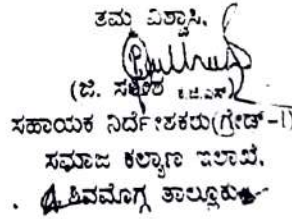 ತಮ್ಮ ವಿಶ್ವಾಸಿ,
(ಜಿ. ಕೆ.ಜಿ.ಎಸ್)
ಸಹಾಯಕ ನಿರ್ದೇಶಕರು(ಗ್ರೇಡ್-1)
ಸಮಾಜ ಕಲ್ಯಾಣ ಇಲಾಖೆ,
ಶಿವಮೊಗ್ಗ ತಾಲ್ಲೂಕು